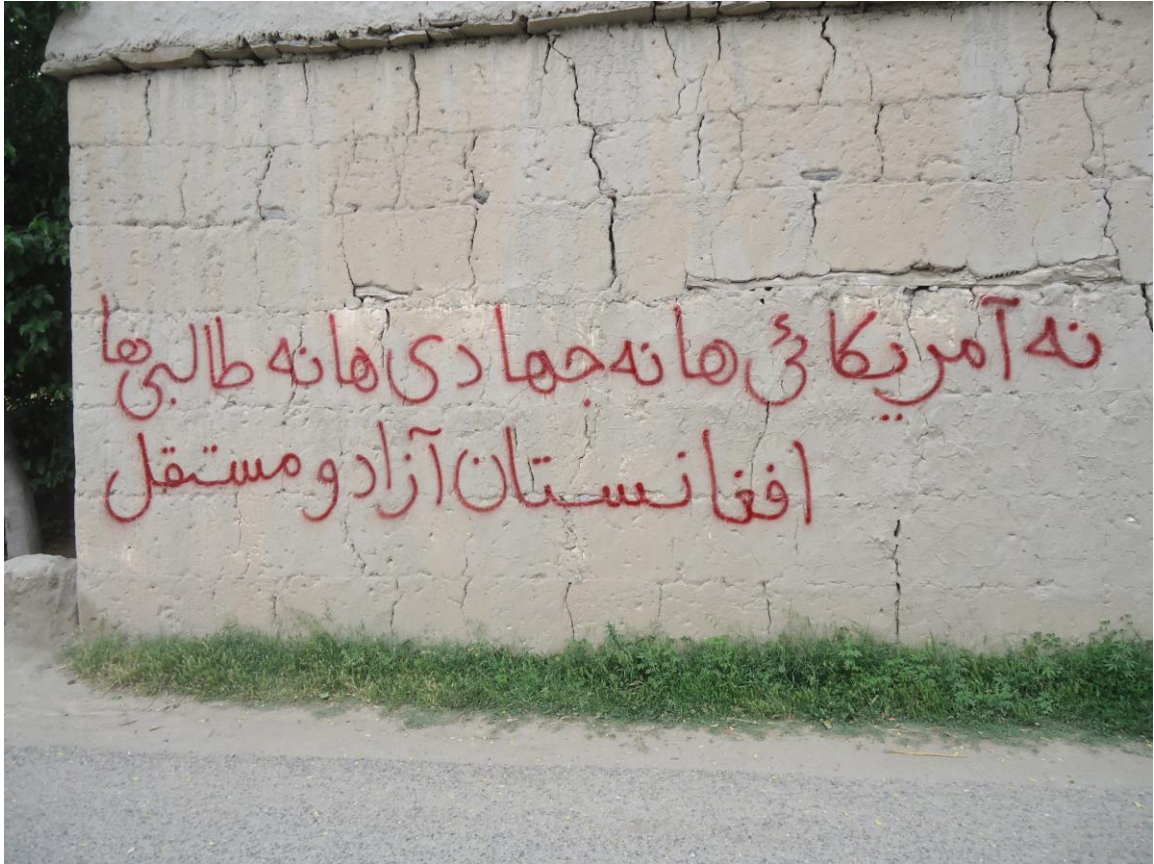 نه آمریکائی ها نه جهادی ها نه طالبی ها
افغانستان آزاد و مستقل